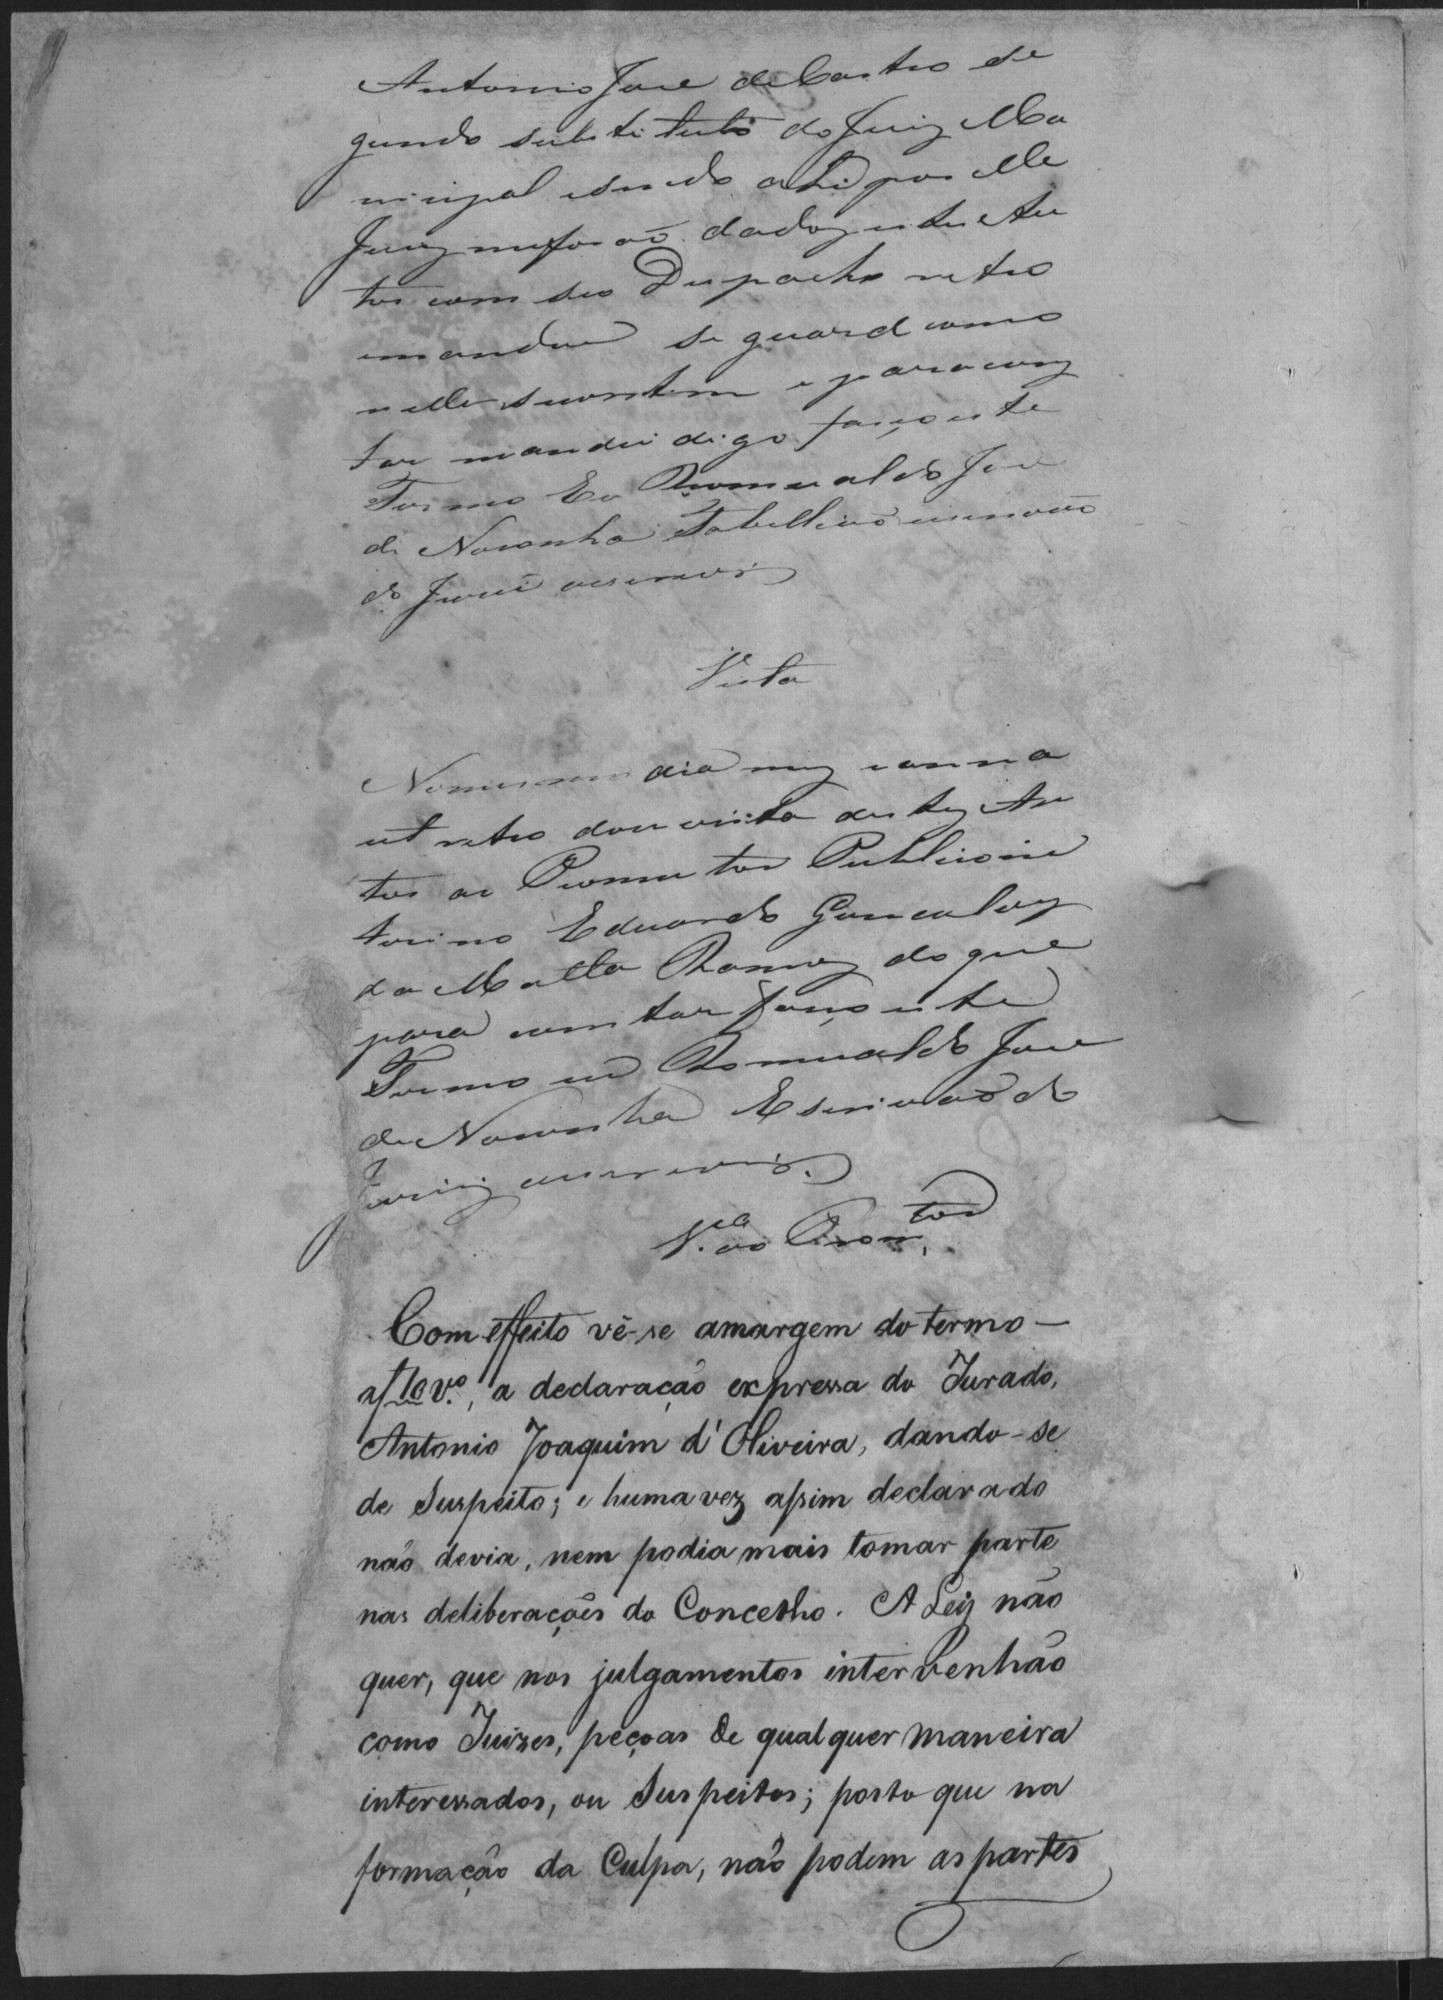 Antonio Jose de Castro se
gundo substituto do Juiz Mu
nicipal e sendo ahi por elle
Juiz me forão dados estes Au
tos com seo Despacho retro
e mandou se guard como
nelle se contem e para cons
tar mandei digo faço este
Termo Eu Romualdo Jose
de Noronha Tabellião escrivão
do Jurii escrevi
Vista
No mesmo dia mez e anno
ut retro dou vista destes Au
tos ao Promutor Publico in
terino Eduardo Goncalvez
da Matta Ramos do que
para constar faço este
Termo eu Romualdo Jose
de Noronha Escrivão do
escrevi.
V.ta ao Prom.tor
Com effeito vê-se amargem do termo —
af 10 v.o, a declaração expressa do Jurado,
Antonio Joaquim d'Oliveira, dando-se
de Suspeito; e huma vez assim declarado
não devia, nem podia mais tomar parte
nas deliberações do Concelho. A Leij não
quer, que nos julgamentos intervenhão
como Juizes, peçoas de qualquer maneira
interessados, ou Suspeitos; posto que na
formação da Culpa, não podem as partes